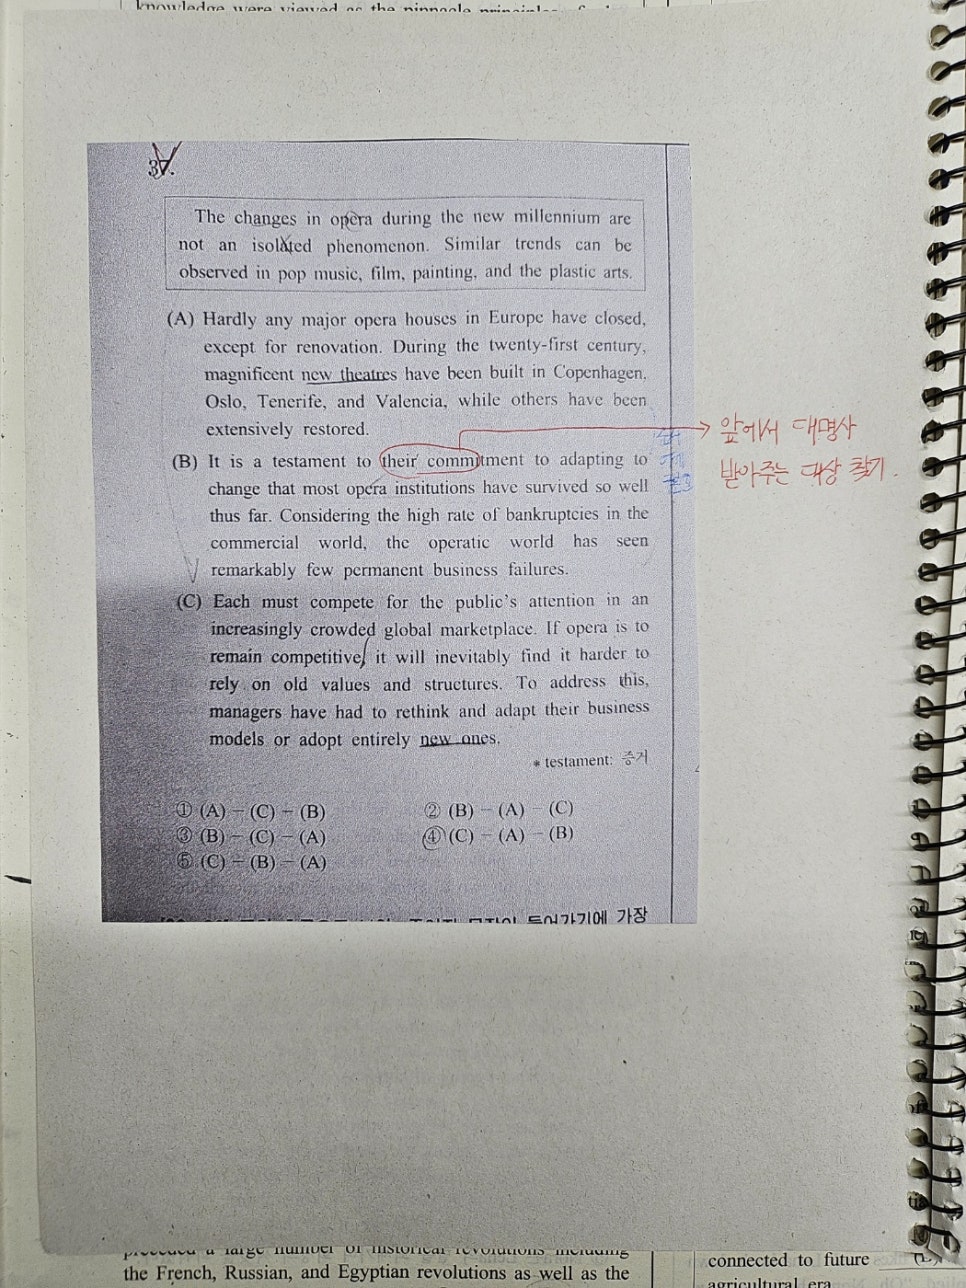 knowledge were viewed as the pinnacle
37.
The changes in opera during the new millennium are
not an isolated phenomenon. Similar trends can be
observed in pop music, film, painting, and the plastic arts.
(A) Hardly any major opera houses in Europe have closed,
except for renovation. During the twenty-first century,
magnificent new theatres have been built in Copenhagen,
Oslo, Tenerife, and Valencia, while others have been
extensively restored.
(B) It is a testament to their commitment to adapting to
change that most opera institutions have survived so well
thus far. Considering the high rate of bankruptcies in the
commercial world, the operatic world has seen
remarkably few permanent business failures.
앞에서 대명사
받아주는 대상 찾기.
(C) Each must compete for the public's attention in an
increasingly crowded global marketplace. If opera is to
remain competitive, it will inevitably find it harder to
rely on old values and structures. To address this,
managers have had to rethink and adapt their business
models or adopt entirely new ones.
* testament: 증거
① (A) - (C) - (B)
② (B) - (A) - (C)
③ (B) - (C) - (A)
④ (C) - (A) - (B)
⑤ (C) - (B) - (A)
들어가기에 가장
preceded a large number of historical revolutions including
the French, Russian, and Egyptian revolutions as well as the
connected to future
agricultural era